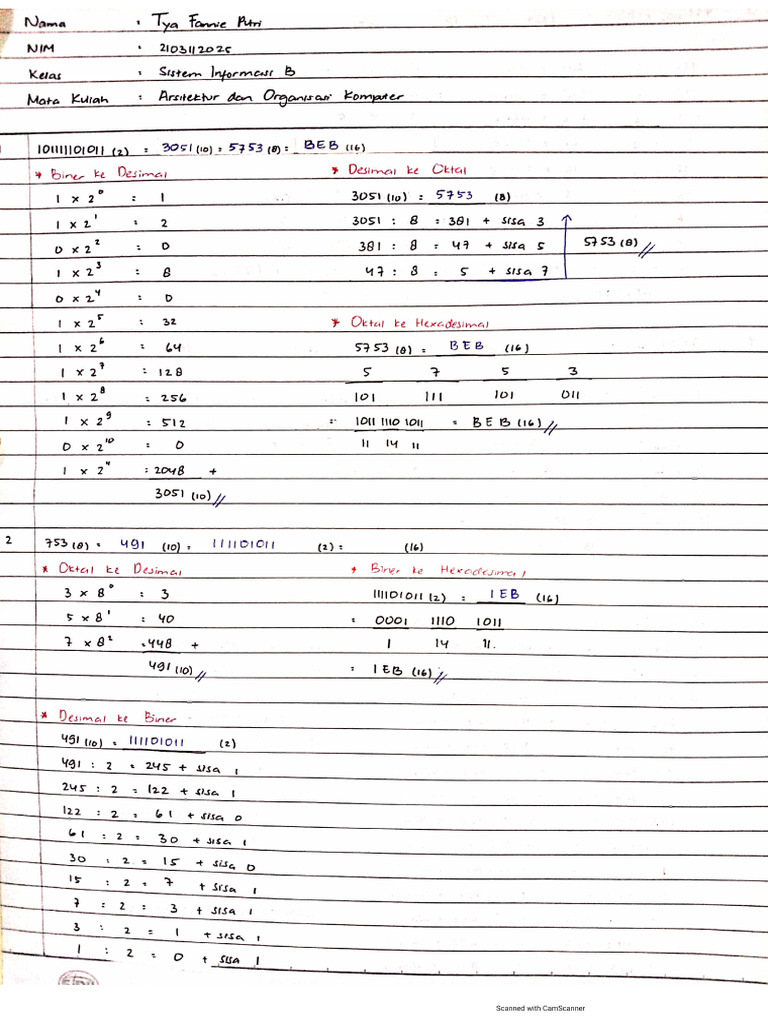 Nama : Tya Fannie Putri
NIM : 2103112025
Kelas : Sistem Informasi B
Mata Kuliah : Arsitektur dan Organisasi Komputer
1 101111101011 (2) = 3051 (10) = 5753 (8) = BEB (16)
* Biner ke Desimal
1 x 2⁰ = 1
1 x 2¹ = 2
0 x 2² = 0
1 x 2³ = 8
0 x 2⁴ = 0
1 x 2⁵ = 32
1 x 2⁶ = 64
1 x 2⁷ = 128
1 x 2⁸ = 256
1 x 2⁹ = 512
0 x 2¹⁰ = 0
1 x 2¹¹ = 2048 +
3051 (10) //
* Desimal ke Oktal
3051 (10) = 5753 (8)
3051 : 8 = 381 + sisa 3
381 : 8 = 47 + sisa 5
47 : 8 = 5 + sisa 7
5753 (8) //
* Oktal ke Hexadesimal
5753 (8) = BEB (16)
5 7 5 3
101 111 101 011
= 1011 1110 1011 = BEB (16) //
11 14 11
2 753 (8) = 491 (10) = 111101011 (2) = (16)
* Oktal ke Desimal
3 x 8⁰ = 3
5 x 8¹ = 40
7 x 8² = 448 +
491 (10) //
* Biner ke Hexadesimal
111101011 (2) = 1EB (16)
= 0001 1110 1011
1 14 11.
= 1EB (16) //
* Desimal ke Biner
491 (10) = 111101011 (2)
491 : 2 = 245 + sisa 1
245 : 2 = 122 + sisa 1
122 : 2 = 61 + sisa 0
61 : 2 = 30 + sisa 1
30 : 2 = 15 + sisa 0
15 : 2 = 7 + sisa 1
7 : 2 = 3 + sisa 1
3 : 2 = 1 + sisa 1
1 : 2 = 0 + sisa 1
Scanned with CamScanner